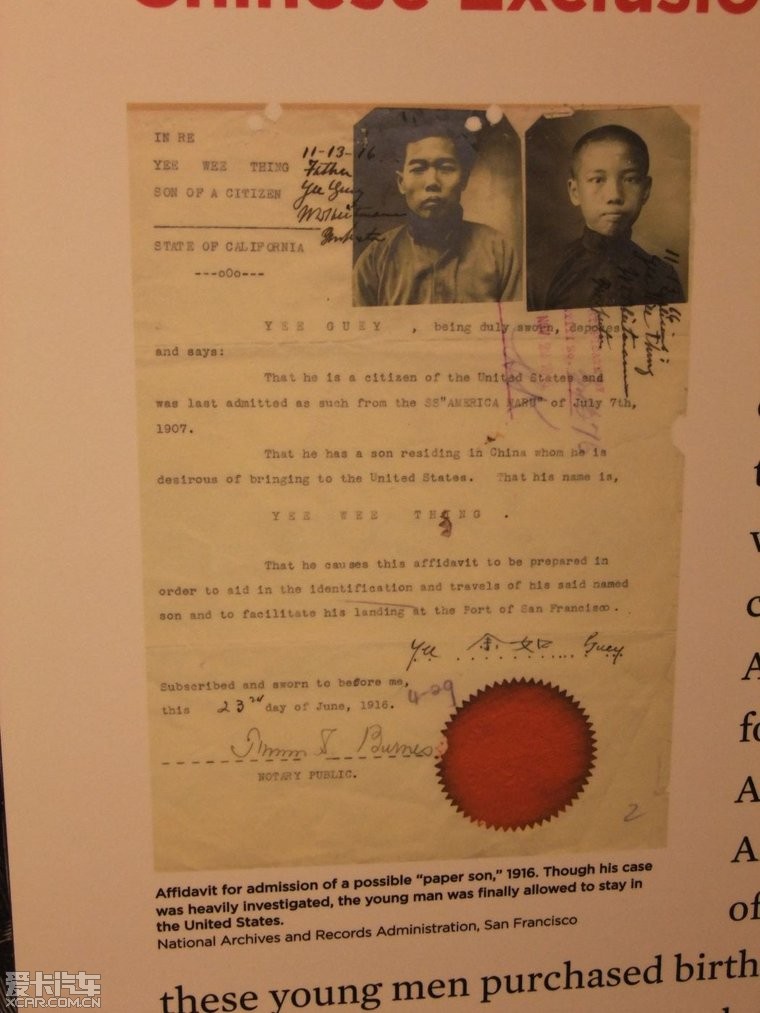 Chinese Exclusio
IN RE
YEE WEE THING
SON OF A CITIZEN
STATE OF CALIFORNIA
---oOo---
11-13-16
Father
Yee Guey
YEE GUEY , being duly sworn, deposes
and says:
That he is a citizen of the United States and
was last admitted as such from the SS"AMERICA MARU" of July 7th,
1907.
That he has a son residing in China whom he is
desirous of bringing to the United States. That his name is,
YEE WEE THING .
That he causes this affidavit to be prepared in
order to aid in the identification and travels of his said named
son and to facilitate his landing at the Port of San Francisco.
Yee 余如 Guey
Subscribed and sworn to before me,
this 23rd day of June, 1916.
4-09
NOTARY PUBLIC.
2
Affidavit for admission of a possible “paper son,” 1916. Though his case
was heavily investigated, the young man was finally allowed to stay in
the United States.
National Archives and Records Administration, San Francisco
these young men purchased birth
of
爱卡汽车
XCAR.COM.CN